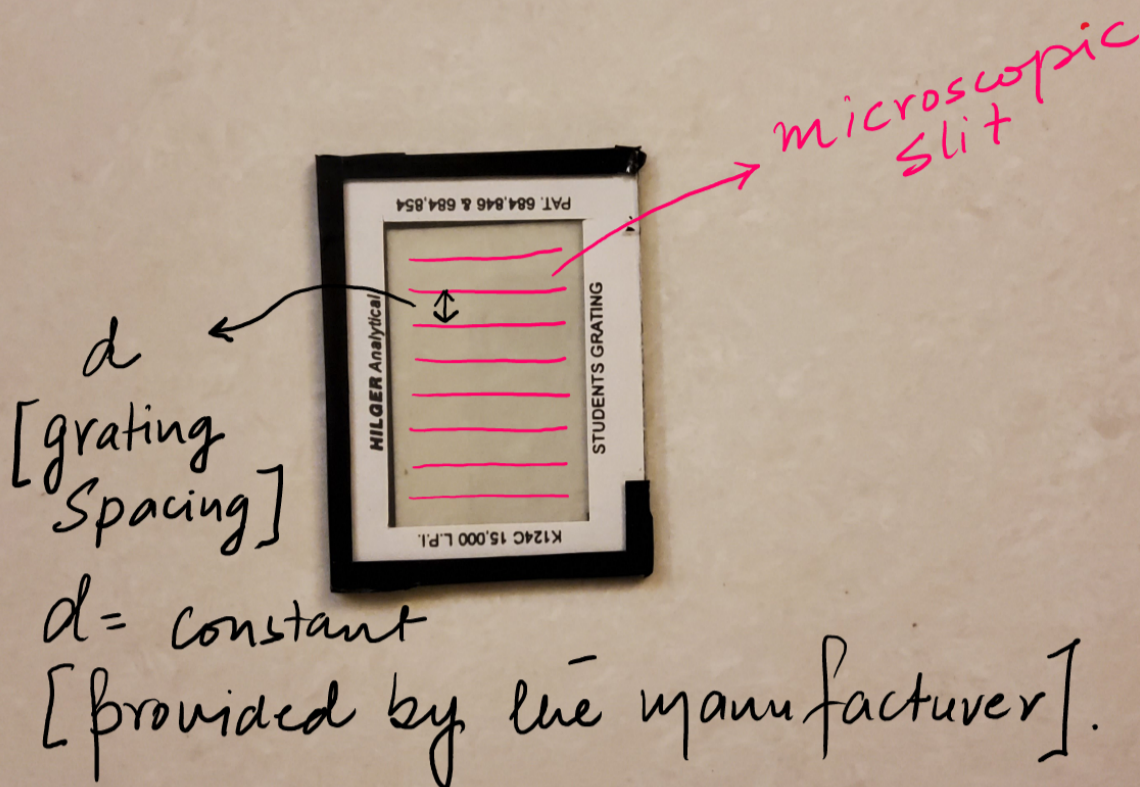 microscopic
slit
PAT. 684,846 & 684,854
HILGER Analytical
STUDENTS GRATING
K124C 15,000 L.P.I.
d
[grating
Spacing]
d = constant
[provided by the manufacturer].